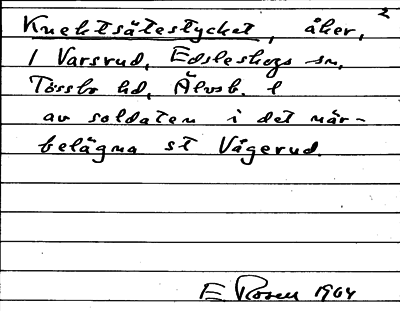 2
Knektsätestycket, åker,
1 Varsrud, Edsleskogs sn,
Tössbo hd, Älvsb. l
av soldaten i det när-
belägna st Vågerud.
E Rosen 1964